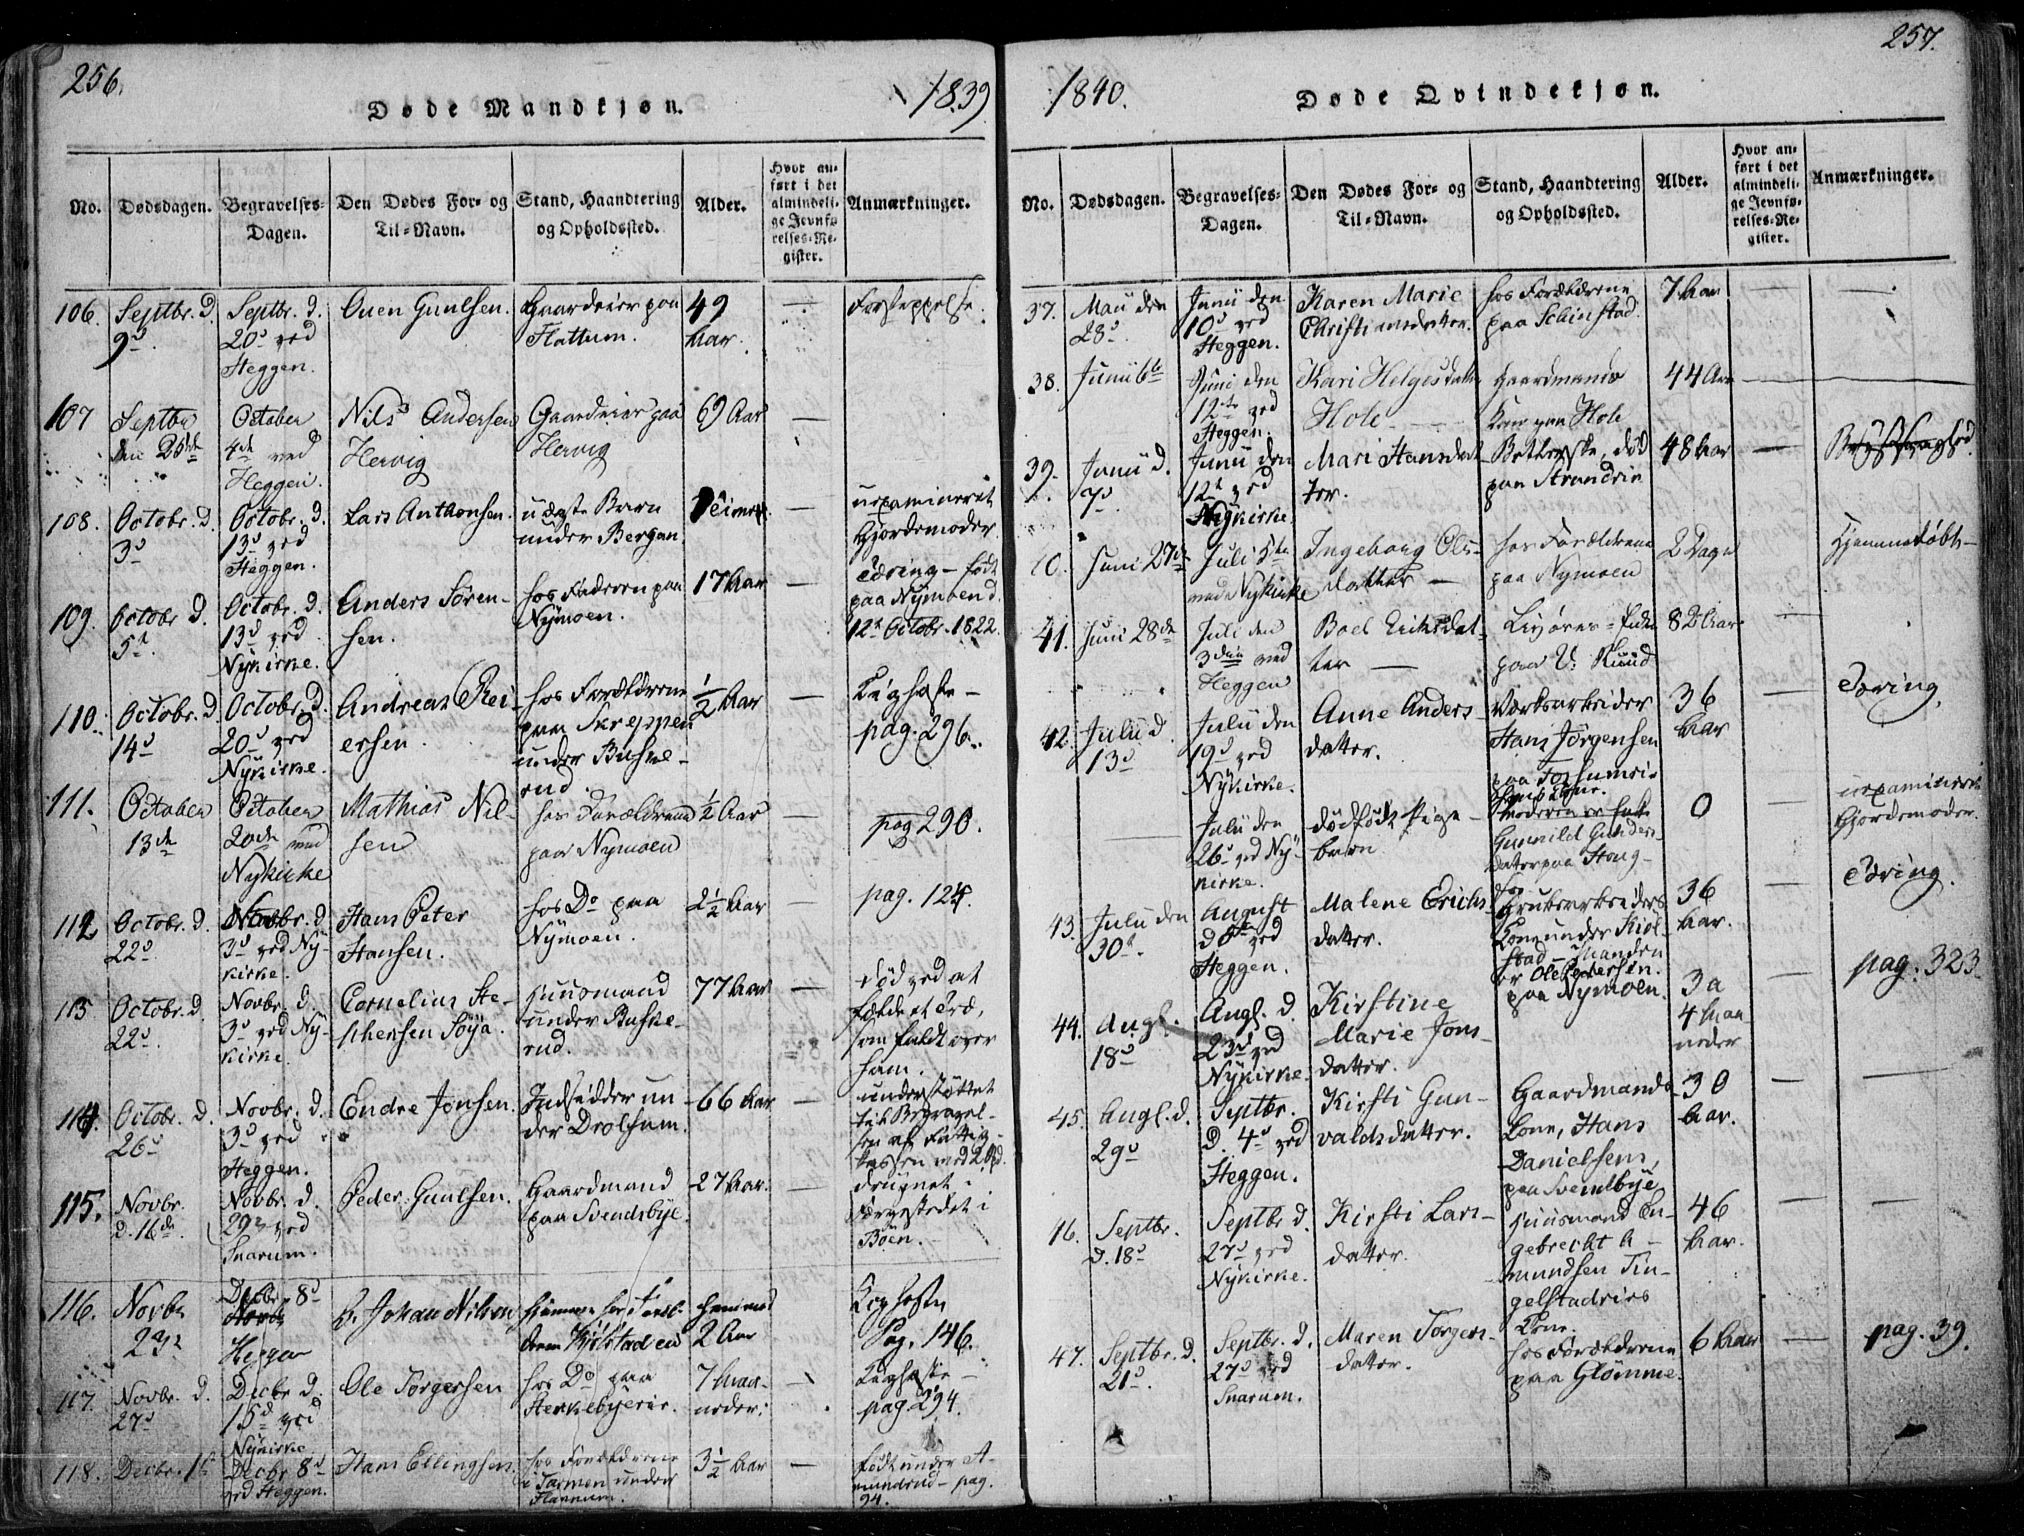 256.
Døde Mandkjøn.
1839
No.
Dødsdagen.
Begravelses-
Dagen.
Den Dødes For- og
Til-Navn.
Stand, Haandtering
og Opholdssted.
Alder.
Hvor an-
ført i det
almindeli-
ge Jevnfø-
relses-Re-
gister.
Anmærkninger.
106.
Septbr. d.
9d
Septbr. d.
20d ved
Heggen.
Ouen Gunlsen.
Gaardeier paa
Flattum.
49
Aar.
107
Septbr
den 25de
October
4de ved
Heggen.
Nils Andersen
Hervig
Gaardeier paa
Hervig
69 Aar
108.
Octobr. d.
3d
Octobr. d.
13d ved
Heggen.
Lars Anthonsen.
uægte Barn
under Bergan.
uexamineret
Gjordemoder.
109.
Octobr d.
5t
Octobr. d.
13d ved
Nykirke.
Anders Sören-
sen.
hos Faderen paa
Nymoen.
17 Aar
Tæring - født
paa Nymoen d.
12t Octobr. 1822.
110.
Octobr. d.
14d
Octobr. d.
20d ved
Nykirke.
Andreas Rei-
ersen.
hos Forældrene
paa Skreppen
under Buske-
rud.
½ Aar
Kighoste -
pag. 296.
111.
October
13de
October
20de ved
Nykirke
Mathias Nil-
sen
hos Forældrene
paa Nymoen
½ Aar
pag 290.
112
Octobr. d.
22d
Novbr. d
3d ved Ny-
kirke.
Hans Peter
Hansen.
hos Do paa
Nymoen.
2½ Aar
pag. 124.
113
Octobr. d.
22d
Novbr. d.
3d ved Ny-
kirke.
Cornelius Ste-
phensen Söya.
Huusmand
under Buske-
rud.
77 Aar
død ved at
fælde et Træ,
som faldt over
ham.
114.
Octobr. d.
26d
Novbr. d.
3d ved
Heggen.
Endre Jonsen.
Indsidder un-
der Drolsum.
66 Aar
understøttet
til Begravel-
sen af Fattig-
kassen med 2 Spd.
115.
Novbr.
d. 16de
Novbr. d.
29d ved
Snarum.
Peder Gunlsen.
Gaardmand
paa Svendsbye.
27 Aar.
druknet i
Færgestedet i
Böen.
116.
Novbr
23d
Decbr. 8d
Novbr
Heggen
Johan Nilsen
2 Aar
Kighoste
Pag. 146.
117.
Novbr. d.
27d
Decbr d.
15d ved
Nykirke
Ole Torgersen
hos Do paa
Sterkebyeeie.
7 Maa-
neder.
Kighoste -
pag. 294.
118.
Decbr. 1t
Decbr 8d
ved Heggen.
Hans Ellingsen.
hos Forældrene
i Tarmen under
Flannum.
3½ Aar
født under A-
mundrud - pag.
94.
257.
1840.
Døde Qvindekjøn.
No.
Dødsdagen.
Begravelses-
Dagen.
Den Dødes For- og
Til-Navn.
Stand, Haandtering
og Opholdssted.
Alder.
Hvor an-
ført i det
almindeli-
ge Jevnfø-
relses-Re-
gister.
Anmærkninger.
37.
Maii den
28d
Junii den
10d ved
Heggen.
Karen Marie
Christiansdatter.
hos Forældrene
paa Schinstad.
7 Aar
38.
Junii 6te
Juni den
12te ved
Heggen.
Kari Helgesdatter
Hole
Gaardmands
Kone paa Hole
44 Aar
39.
Junii d.
7d
Junii den
12t ved
Nykirke.
Mari Hansdat-
ter.
Betlerske, død
paa Strandeie
48 Aar
Brystsyghed.
Juni 27de
Juli 5te
ved Nykirke
Ingeborg Ols-
datter
hos Forældrene
paa Nymoen
2 Dage
Hjemmedøbt -
41.
Juni 28de
Juli den
3die ved
Heggen
Boel Eriksdat-
ter
paa V. Ruud
82 Aar
42.
Julii d.
13d
Julii den
19d ved
Nykirke.
Anne Anders-
datter.
Værksarbeider
Hans Jörgensen
36
Aar
Tæring.
Julii den
26d ved Ny-
kirke.
dødfødt Pige-
barn
Moderen er Enke
Gunnild Gunders-
datter paa Houg-
0
uexamineret
Gjordemoder.
43.
Julii den
30t.
August
d 8de ved
Heggen.
Malene Erichs-
datter.
Grubearbeiders
Kone under Kiöl-
stad - Manden
er Ole Pedersen.
36
Aar.
Tæring.
44.
Augs.
18d
Augs. d.
23d ved
Nykirke.
Kirstine
Marie Jons-
datter.
paa Nymoen.
3 a
4 Maa-
neder
pag. 323
45.
Augs. d.
29d
Septbr.
d. 4d ved
Heggen.
Kirsti Gun-
valdsdatter.
Gaardmands
Kone, Hans
Danielsens,
paa Svendsbye
30
Aar.
Septbr.
d. 18d
Septbr d.
27d ved
Nykirke.
Kirsti Lars-
datter.
Huusmand En-
gebrecht A-
mundsen Tin-
gelstadeies
Kone.
46
Aar.
47.
Septbr. d.
21d.
Septbr. d.
27d ved
Snarum.
Maren Torgers-
datter.
hos Forældrene
paa Glömme.
6 Aar
pag. 39.